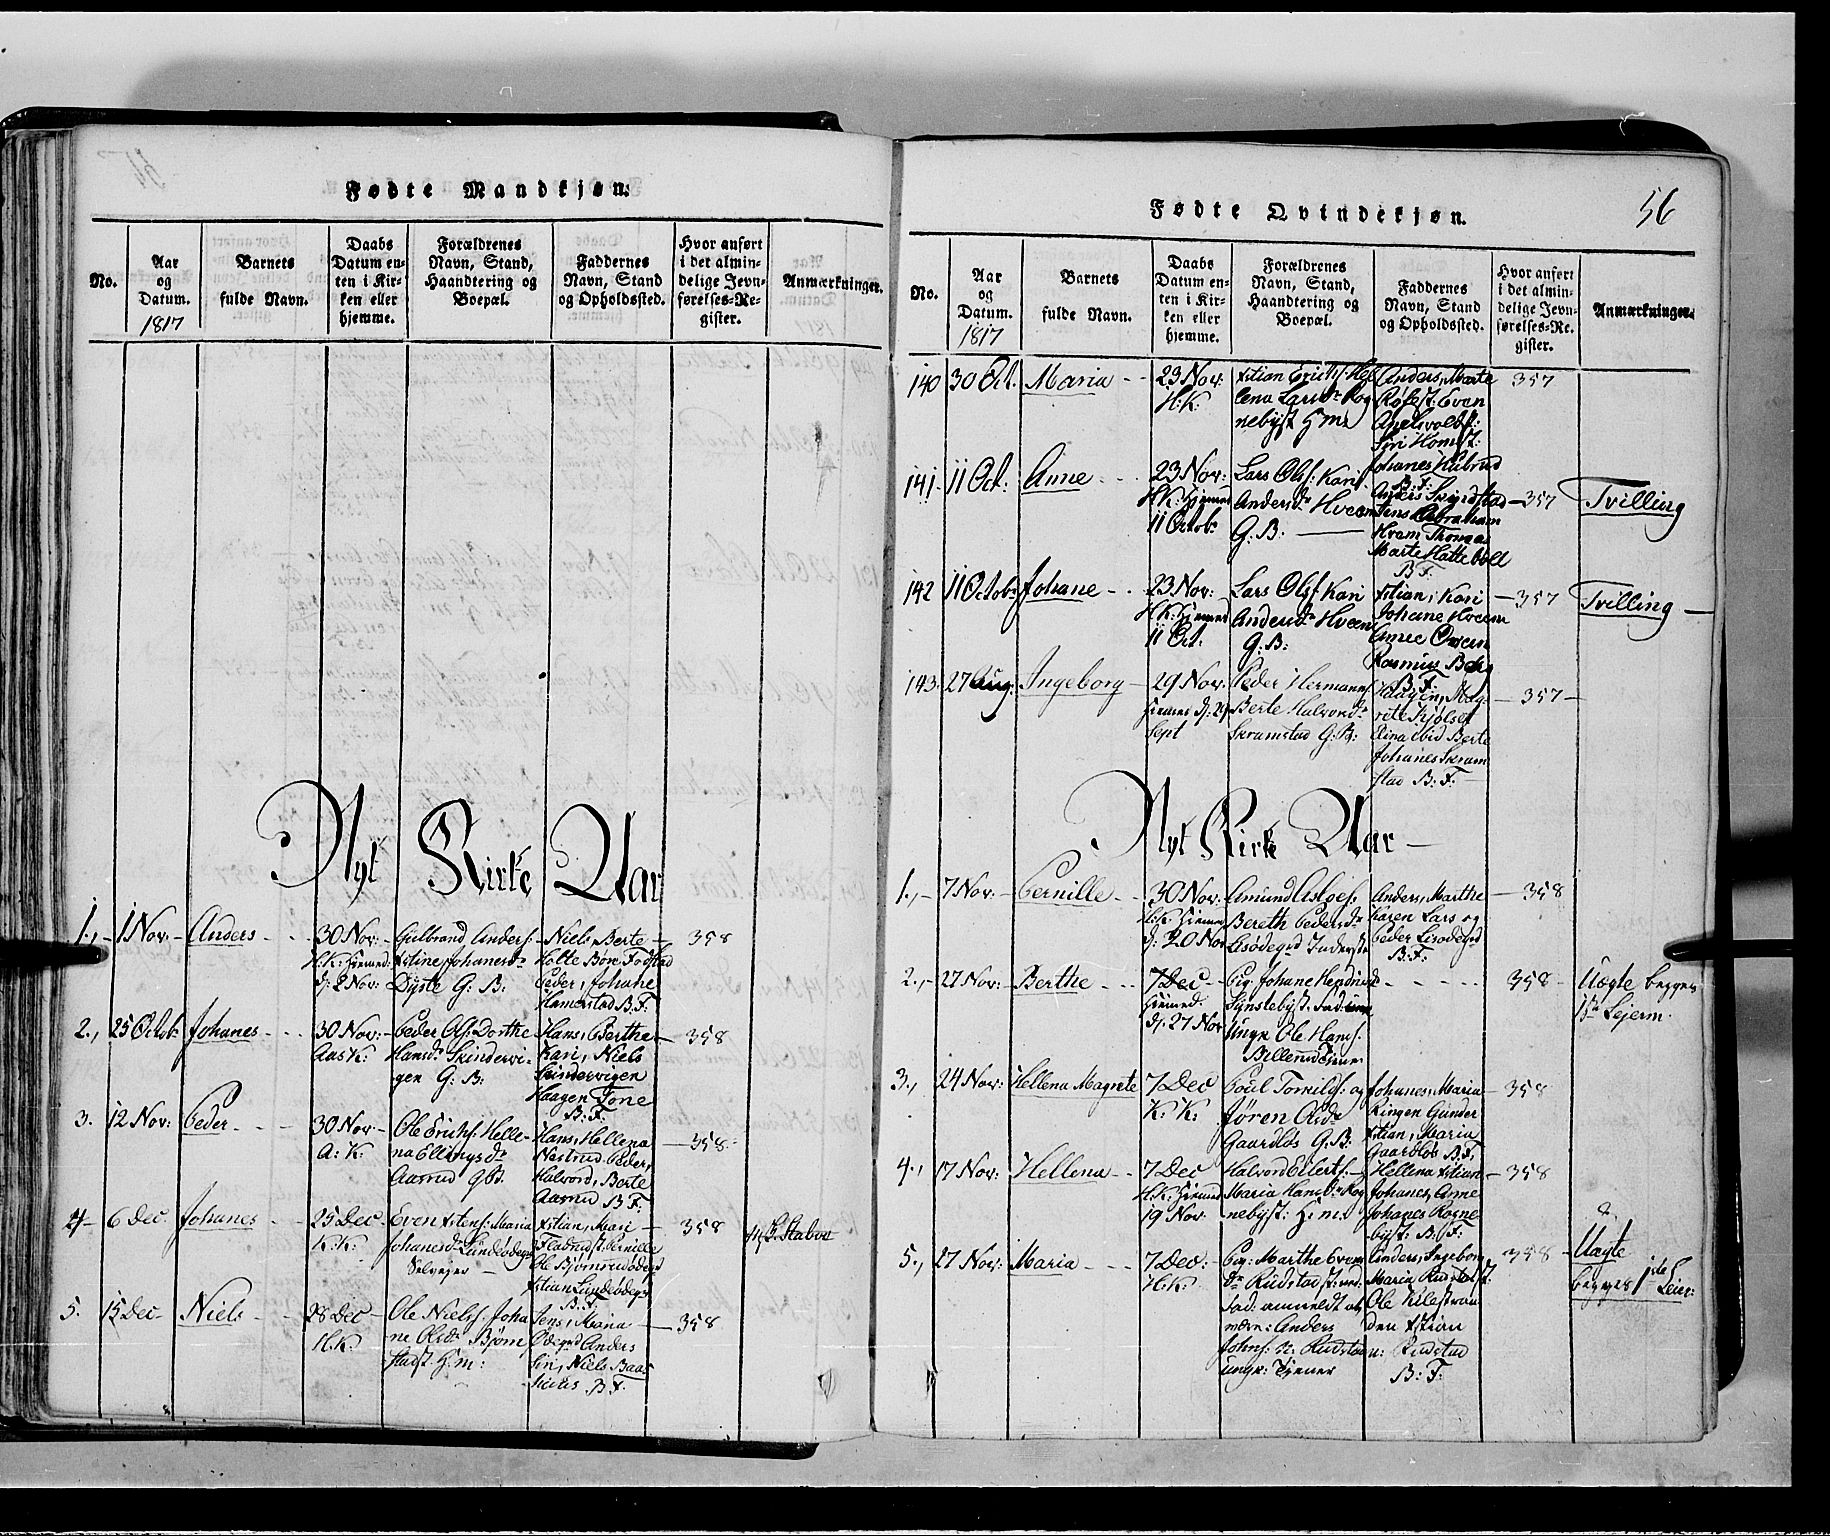 Fødte Mandkjøn.
No.
Aar
og
Datum.
1817
Barnets
fulde Navn.
Daabs
Datum en-
ten i Kir-
ken eller
hjemme.
Forældrenes
Navn, Stand,
Haandtering og
Boepæl.
Faddernes
Navn, Stand
og Opholdssted.
Hvor anført
i det almin-
delige Jevn-
førelses-Re-
gister.
Anmærkninger.
Nyt Kirke Aar
1., 1 Nov: Anders
30 Nov:
H:K: Hiemed:
d: 2 Nov:
Gulbrand Anders:
Xstine Johanesd:
Dyste G: B:
Niels, Berte
Hotte Børe Fodstad
Peder, Johane
Hamerstad B: F:
358
2., 25 Octob: Johanes
30 Nov:
Aas K:
Peder Ols: Dorthe
Hansd: Skindervi-
gen G: B:
Hans, Berthe
Kari, Niels
Skindervigen
Haagen Tone
B: F:
358
3. 12 Nov: Peder
30 Nov
A: K:
Ole Erichs: Helle-
na Ellingsd:
Aasrud Gbd.
Hans, Hellena
Nestrud Peder,
Halvord, Berte
Aasrud B: F:
358
4 6 Dec Johanes
25 Dec
K: K:
Even Xstens: Maria
Johanesd: Lundeødegd
Selveyer
Xstian, Mari
Fladnust: Pernille
Ole Bjørnsrudødegd
Xstian Lundeødegd
B: F:
358
5. 15 Dec Niels
28 Dec
H: K:
Ole Niels: Joha
ne Olsd: Bjørn
stadst: H: m:
Jens, Maria
Ødegrd Anders
Siri, Niels Baas
B: F:
358
Fødte Qvindekjøn.
56
No.
Aar
og
Datum.
1817
Barnets
fulde Navn.
Daabs
Datum en-
ten i Kir-
ken eller
hjemme.
Forældrenes
Navn, Stand,
Haandtering og
Boepæl.
Faddernes
Navn, Stand
og Opholdssted.
Hvor anført
i det almin-
delige Jevn-
førelses-Re-
gister.
Anmærkninger.
140 30 Oct. Maria
23 Nov:
H: K:
Xstian Erichs: Hel
lena Larsd: Rog
nebyst H: m:
Anders, Marte
Røfest: Even
Apelsvoldst:
Siri Homst:
357
141 11 Oct: Anne
23 Nov:
H: K: Hiemed
11 Octob:
Lars Ols: Kari
Andersd: Hveem
G: B:
Johanes Hilsrud
B: F:
Anders Skiøstad
Jens Abraham
Hveem Thomas
Marte Hattebøll
B F:
357
Tvilling
142 11 Octob: Johane
23 Nov:
H: K: Hiemed
11 Oct:
Lars Ols: Kari
Andersd: Hveem
G: B:
Xstian, Kari
Johane Hveem
Anne Oveen
Rasmus Berg
B: F:
357
Tvilling
143. 27 Aug: Ingeborg
29 Nov:
Hiemed d: 29
Sept
Peder Hermans:
Berte Halvord:
Skramstad G: B:
Haagen, Mag-
rete Kjølset
Eina ibid Berte
Johanes Skram
stad B: F:
357
Nyt Kirke Aar
1., 7 Nov: Pernille
30 Nov:
H: K: Hiemed
d: 20 Nov
Amund Asloes:
Bereth Pedersd:
Gsødegrd Inderste
Anders, Marthe
Karen Lars og
Peder Lisødegrd
B: F:
358
2., 27 Nov: Berthe
7 Dec
Hiemed.
d: 27 Nov
Pig: Johane Hendrichsd
Synslebyst. Fad:
Ungk Ole Hans:
Billerud
358
Uægte begges
1ste Lejerm.
3., 24 Nov: Hellena Magrete
7 Dec
K: K:
Poul Torkilds: og
Jøren Olsd:
Gaardløs G: B:
Johanes, Maria
Ringen Gunder
Xstian, Maria
Gaardløs B: F:
358
4., 17 Nov: Hellena
7 Dec
H: K: Hiemed
19 Nov:
Halvord Eilerts:
Maria Hansd: Rog
nebyst: H: m:
Hellena Xstian
Johanes, Anne
Johanes Rogne
byst: B: F:
358
5., 27 Nov: Maria
7 Dec:
H: K:
Pig: Marthe Evens
d: Rudstadst: ud
Fad: anmeldt af
mære: Anders
Johns: n: Rudstad
ungk: Tjener
Anders, Ingebor
Maria Rudstadst:
Ole Kilestran
den Xstian
n: Rudstad
B: F:
358
Uægte
begges 1ste Leier: